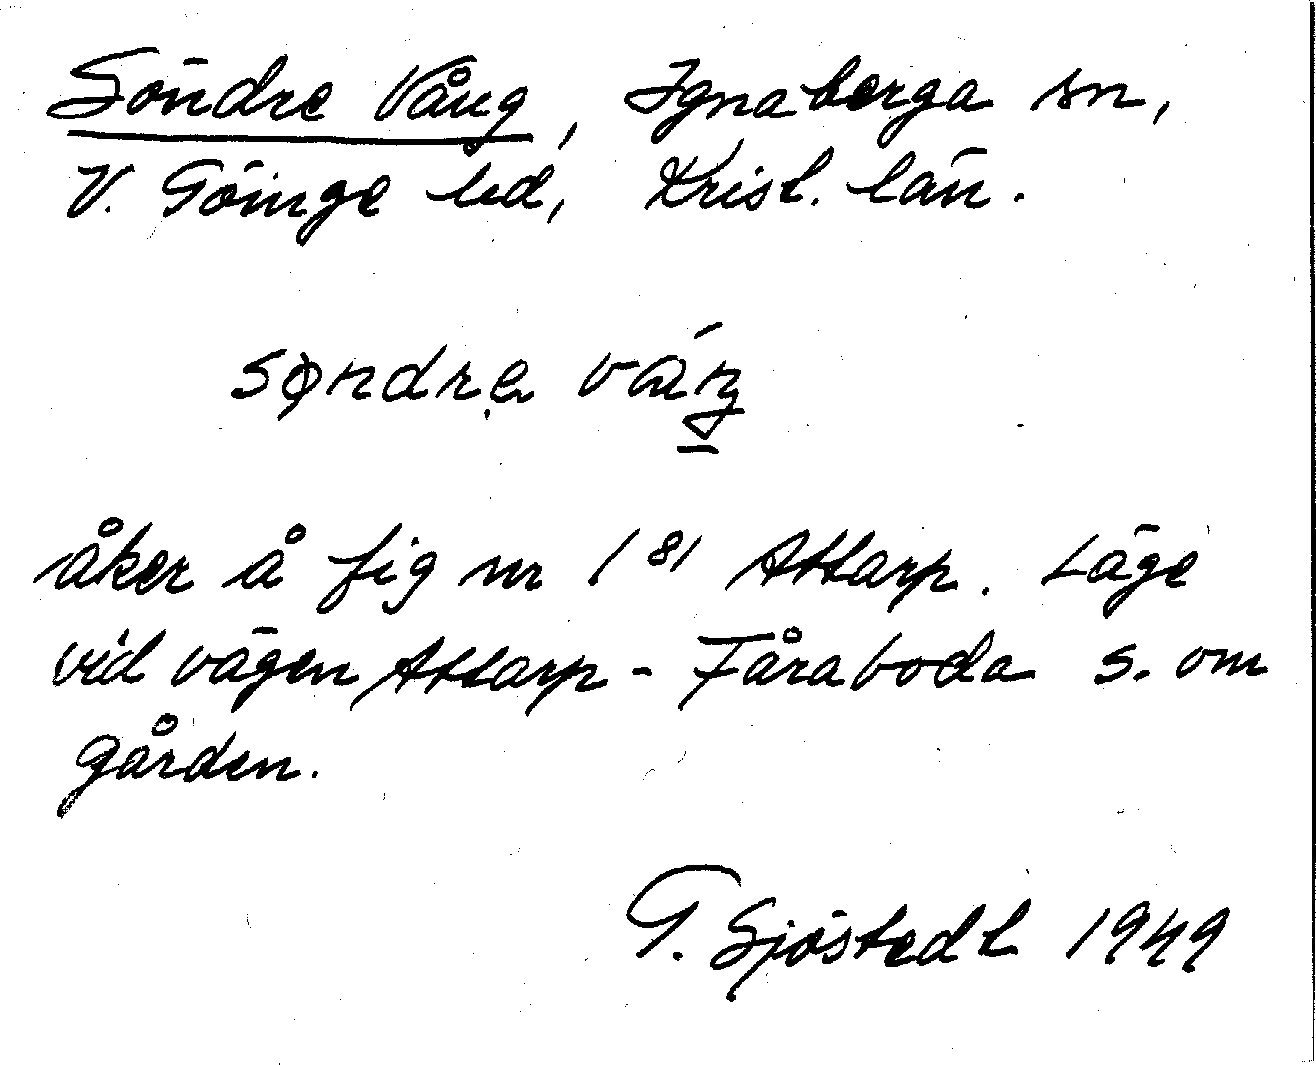 Söndre Vång, Ignaberga sn,
V. Göinge hd, Krist. län.
søndre váŋ
åker å fig nr 1⁸¹ Attarp. Läge
vid vägen Attarp - Fåraboda s. om
gården.
G. Sjöstedt 1949